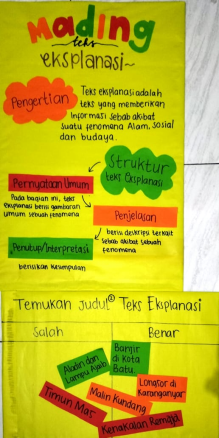 Mading
teks
eksplanasi~
Pengertian
Teks eksplanasi adalah
teks yang memberikan
informasi sebab akibat
suatu fenomena Alam, Sosial
dan budaya.
Struktur
teks Eksplanasi
Pernyataan Umum
Pada bagian ini, teks
eksplanasi berisi gambaran
umum sebuah fenomena
Penjelasan
berisi deskripsi terkait
sebab akibat sebuah
fenomena
Penutup/Interpretasi
berisikan Kesimpulan
Temukan Judul² Teks Eksplanasi
Salah
Benar
Aladin dan
Lampu Ajaib
Banjir
di Kota
Batu.
Longsor di
Karanganyar
Timun Mas
Malin Kundang
Kenakalan Remaja